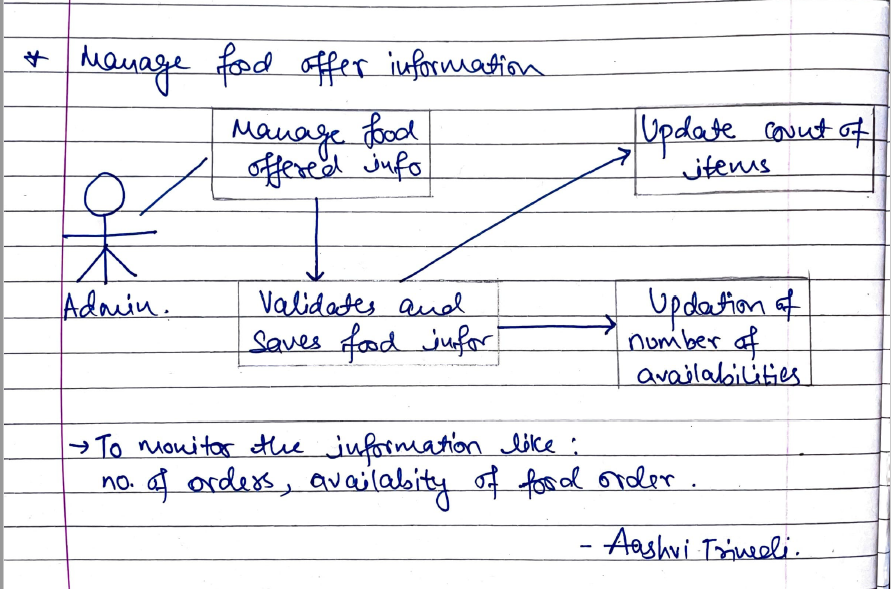 * Manage food offer information
Manage food
offered info
Update count of
items
Admin.
Validates and
Saves food infor
Updation of
number of
availabilities
→ To monitor the information like :
no. of orders, availabity of food order .
- Aashvi Trivedi.